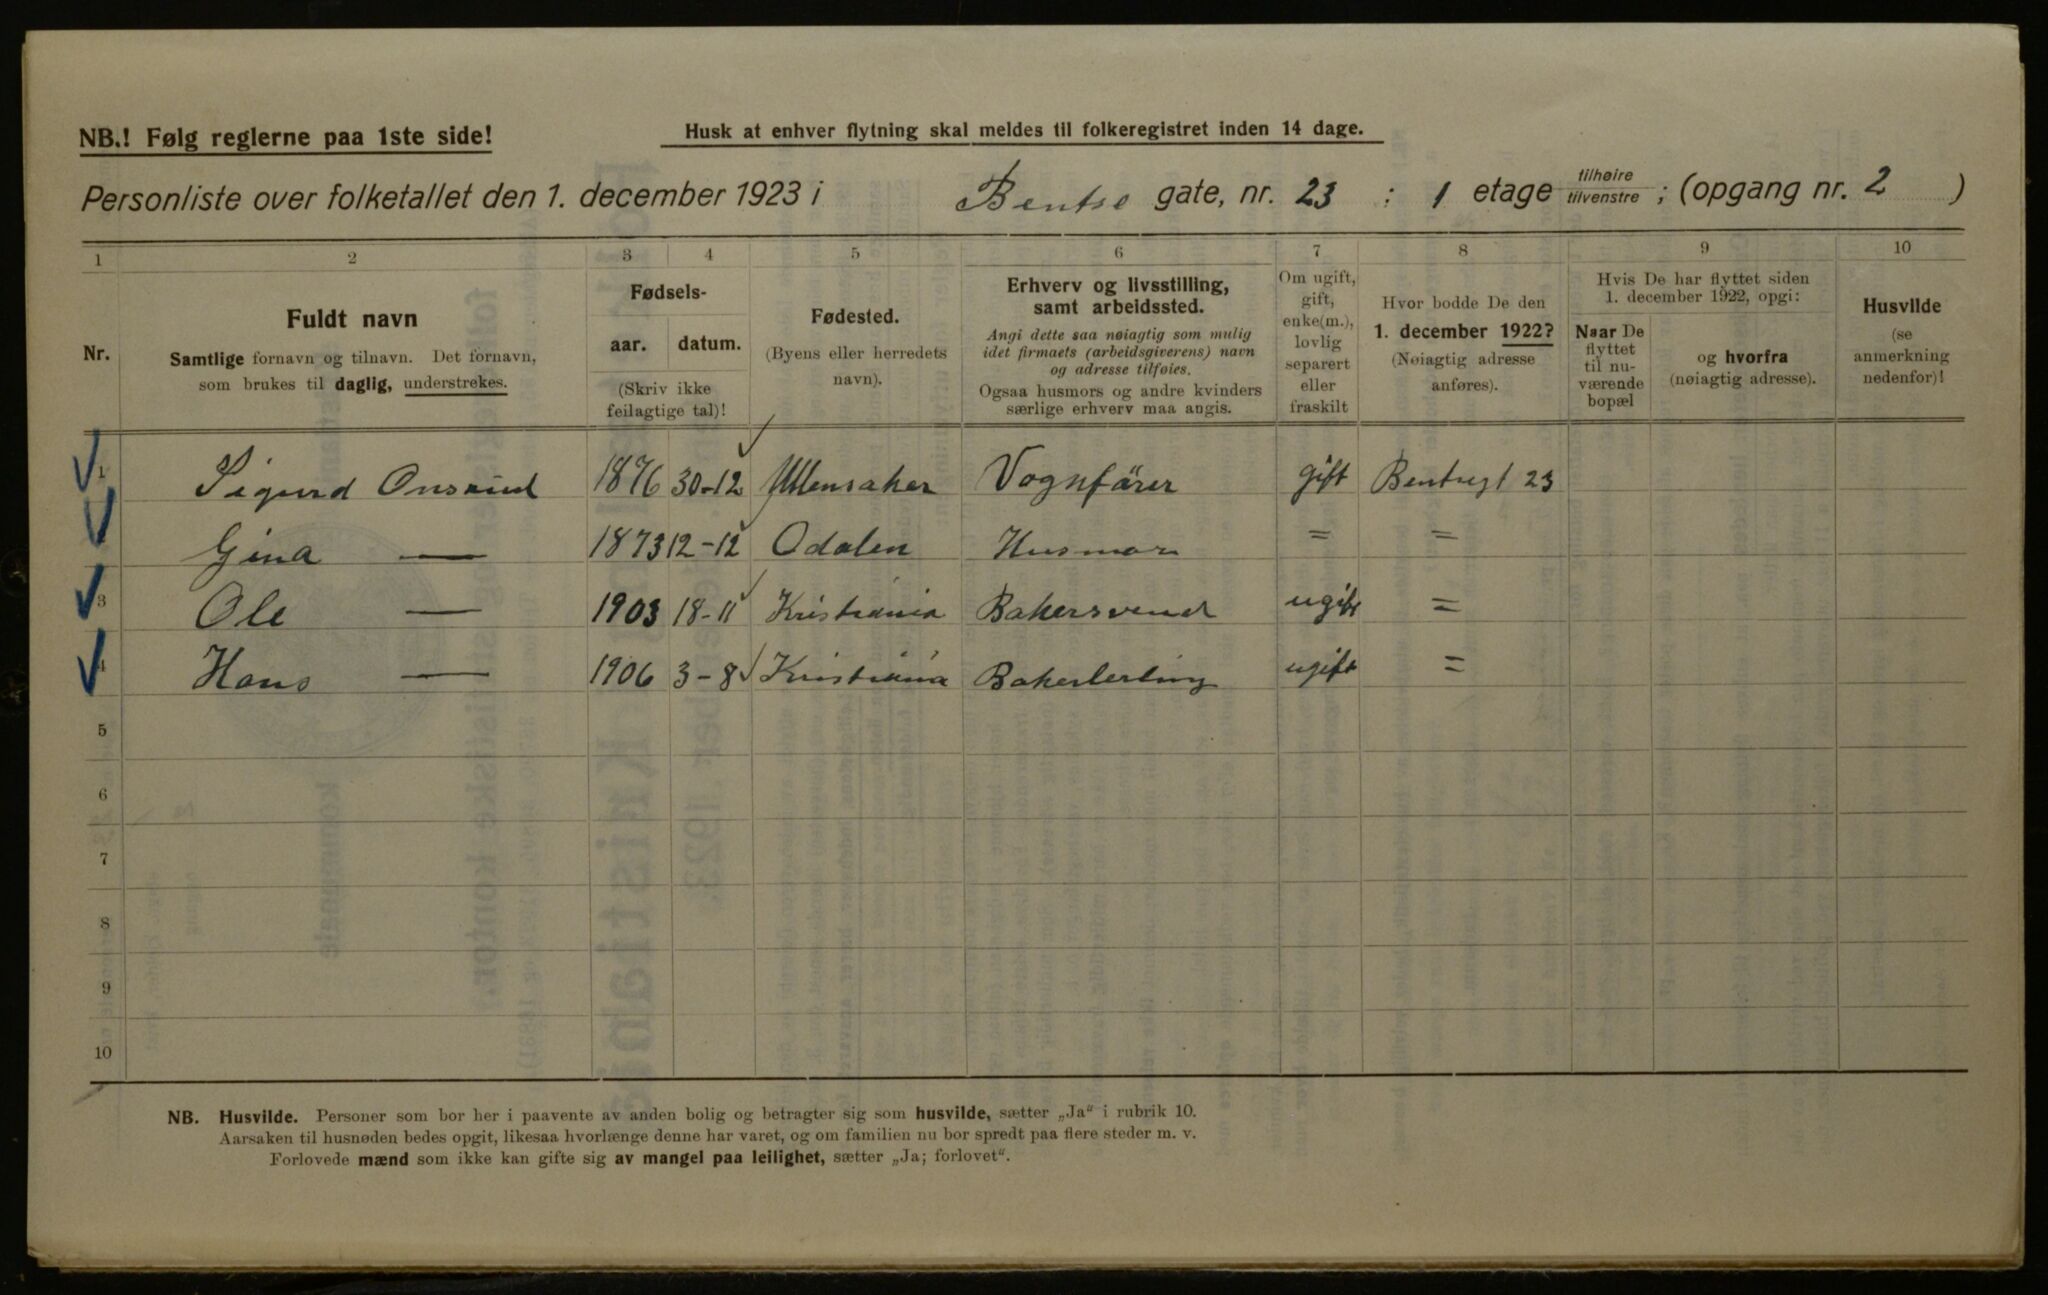 NB.! Følg reglerne paa 1ste side!
Husk at enhver flytning skal meldes til folkeregistret inden 14 dage.
Personliste over folketallet den 1. december 1923 i Bentse gate, nr. 23 : 1 etage tilhøire tilvenstre ; (opgang nr. 2 )
1 2 3 4 5 6 7 8 9 10
Nr.
Fuldt navn
Samtlige fornavn og tilnavn. Det fornavn,
som brukes til daglig, understrekes.
Fødsels-
aar. datum.
(Skriv ikke
feilagtige tal)!
Fødested.
(Byens eller herredets
navn).
Erhverv og livsstilling,
samt arbeidssted.
Angi dette saa nøiagtig som mulig
idet firmaets (arbeidsgiverens) navn
og adresse tilføies.
Ogsaa husmors og andre kvinders
særlige erhverv maa angis.
Om ugift,
gift,
enke(m.),
lovlig
separert
eller
fraskilt
Hvor bodde De den
1. december 1922?
(Nøiagtig adresse
anføres).
Hvis De har flyttet siden
1. december 1922, opgi:
Naar De
flyttet
til nu-
værende
bopæl
og hvorfra
(nøiagtig adresse).
Husvilde
(se
anmerkning
nedenfor)!
1 Sigurd Onsrud 1876 30-12 Ullensaker Vognfører gift Bentsegt 23
Gina — 1873 12-12 Odalen Husmor = =
3 Ole — 1903 18-11 Kristiania Bakersvend ugift =
4 Hans — 1906 3-8 Kristiania Bakerlerling ugift =
5
6
7
8
9
10
NB. Husvilde. Personer som bor her i paavente av anden bolig og betragter sig som husvilde, sætter „Ja“ i rubrik 10.
Aarsaken til husnøden bedes opgit, likesaa hvorlænge denne har varet, og om familien nu bor spredt paa flere steder m. v.
Forlovede mænd som ikke kan gifte sig av mangel paa leilighet, sætter „Ja; forlovet“.